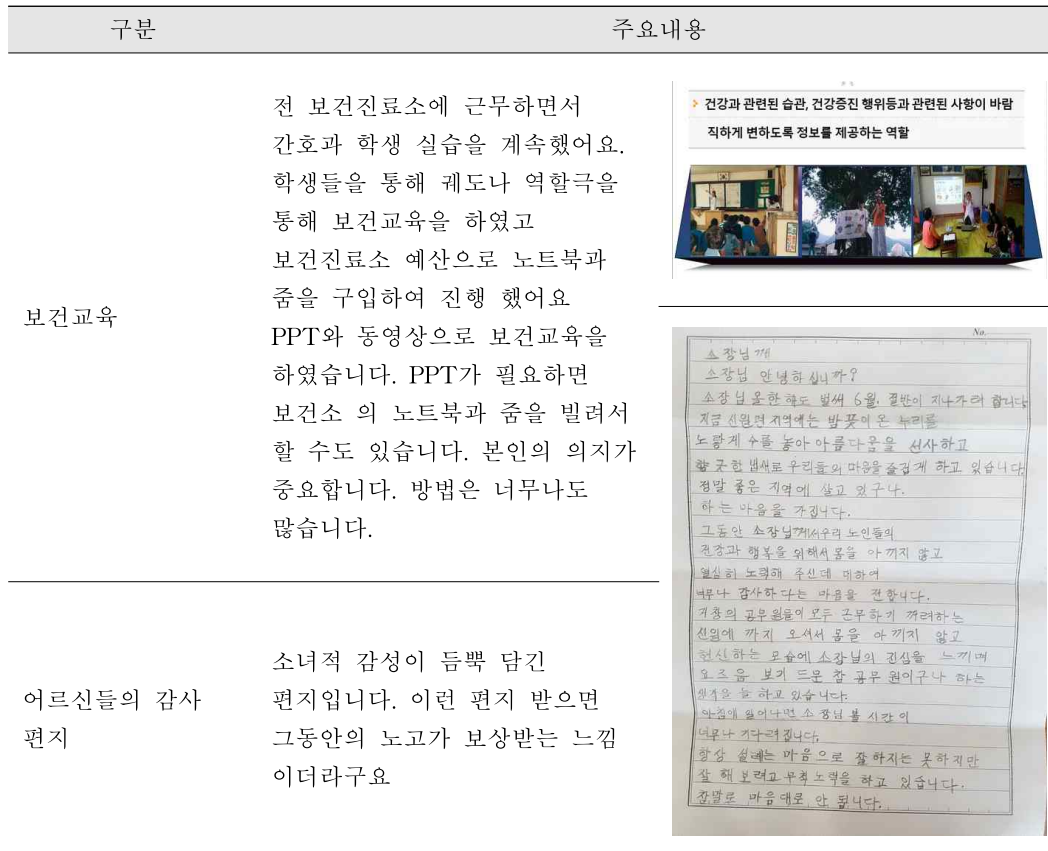 구분
주요내용
보건교육
전 보건진료소에 근무하면서
간호과 학생 실습을 계속했어요.
학생들을 통해 궤도나 역할극을
통해 보건교육을 하였고
보건진료소 예산으로 노트북과
줌을 구입하여 진행 했어요
PPT와 동영상으로 보건교육을
하였습니다. PPT가 필요하면
보건소 의 노트북과 줌을 빌려서
할 수도 있습니다. 본인의 의지가
중요합니다. 방법은 너무나도
많습니다.
건강과 관련된 습관, 건강증진 행위등과 관련된 사항이 바람
직하게 변하도록 정보를 제공하는 역할
어르신들의 감사
편지
소녀적 감성이 듬뿍 담긴
편지입니다. 이런 편지 받으면
그동안의 노고가 보상받는 느낌
이더라구요
No.
소장님께
소장님 안녕하십니까?
소장님 올한해도 벌써 6월. 절반이 지나가려 합니다
지금 신원면 지역에는 밤꽃이 온 누리를
노랗게 수를 놓아 아름다움을 선사하고
향긋한 냄새로 우리들의 마음을 즐겁게 하고 있습니다
정말 좋은 지역에 살고 있구나.
하는 마음을 가집니다.
그동안 소장님께서 우리 노인들의
건강과 행복을 위해서 몸을 아끼지 않고
열심히 노력해 주신데 대하여
너무나 감사하다는 마음을 전합니다.
거창의 공무원들이 모두 근무하기 꺼려하는
신원에 까지 오셔서 몸을 아끼지 않고
헌신하는 모습에 소장님의 진심을 느끼며
요즈음 보기 드문 참 공무원이구나 하는
생각을 늘 하고 있습니다.
아침에 일어나면 소장님 볼 시간이
너무나 기다려집니다.
항상 설레는 마음으로 잘하지는 못하지만
잘 해 보려고 무척 노력을 하고 있습니다.
참말로 마음대로 안 됩니다.